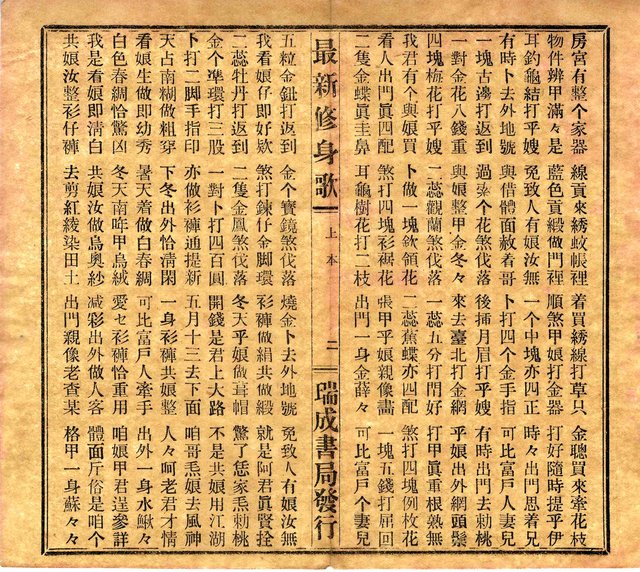 房宮有整個家器 線貢來綉蚊帳裡 着買綉線打草只 金聰買來牽花枝
物件辨甲滿々是 藍色貢緞做門裡 順煞甲娘打金器 打好隨時提乎伊
耳鈎龜結打乎嫂 免致人有娘汝無 一個中塊亦四正 時々出門思着兄
有時卜去外地號 與借體面赦着哥 卜打四個金手指 可比富戶人妻兒
一塊古邊打返到 過索个花煞伐落 後揷月眉打乎嫂 有時出門去勅桃
一對金花八錢重 與娘整甲金冬々 來去臺北打金網 乎娘出外網頭鬃
四塊梅花打乎嫂 二蕊觀蘭煞伐落 一蕊五分打門好 打甲眞重根熟無
我君有個與娘買 卜做一塊欽領花 二蕊蕉蝶亦四配 煞打四塊例枚花
看人出門眞四配 煞打四塊衫裙花 張甲乎娘親像畵 一塊五錢打屏回
二隻金蝶眞圭鼻 耳龜樹花打二枝 出門一身金薛々 可比富戶个妻兒
最新修身歌 上本 二 瑞成書局發行
五粒金鈕打返到 金个寳鏡煞伐落 燒金卜去外地號 免致人有娘汝無
我看娘仔即好欵 煞打鍊仔金脚環 衫褲做絹共做緞 就是阿君眞賢拴
二蕊牡丹打返到 二隻金鳳煞伐落 冬天乎娘做葺帽 驚了恁家𤆬勅桃
金个凖環打三股 一對卜打四百圓 開錢是君上大路 不是共娘用江湖
卜打二脚手指印 亦做衫褲通提新 五月十三去下面 咱哥𤆬娘去風神
天占南糊做粗穿 下冬出外恰淸閑 一身衫褲共娘整 人々呵老君才情
看娘生做即幼秀 暑天着做白春綢 可比富戶人牽手 出外一身水鰍々
白色春綢恰驚凶 冬天南哖甲鳥絨 愛セ衫褲恰重用 咱娘甲君逞參詳
我是看娘即淸白 共娘汝做鳥奧紗 减彩出外做人客 體面斤俗是咱个
共娘汝整衫仔褲 去剪紅綾染田土 出門親像老查某 格甲一身蘇々々